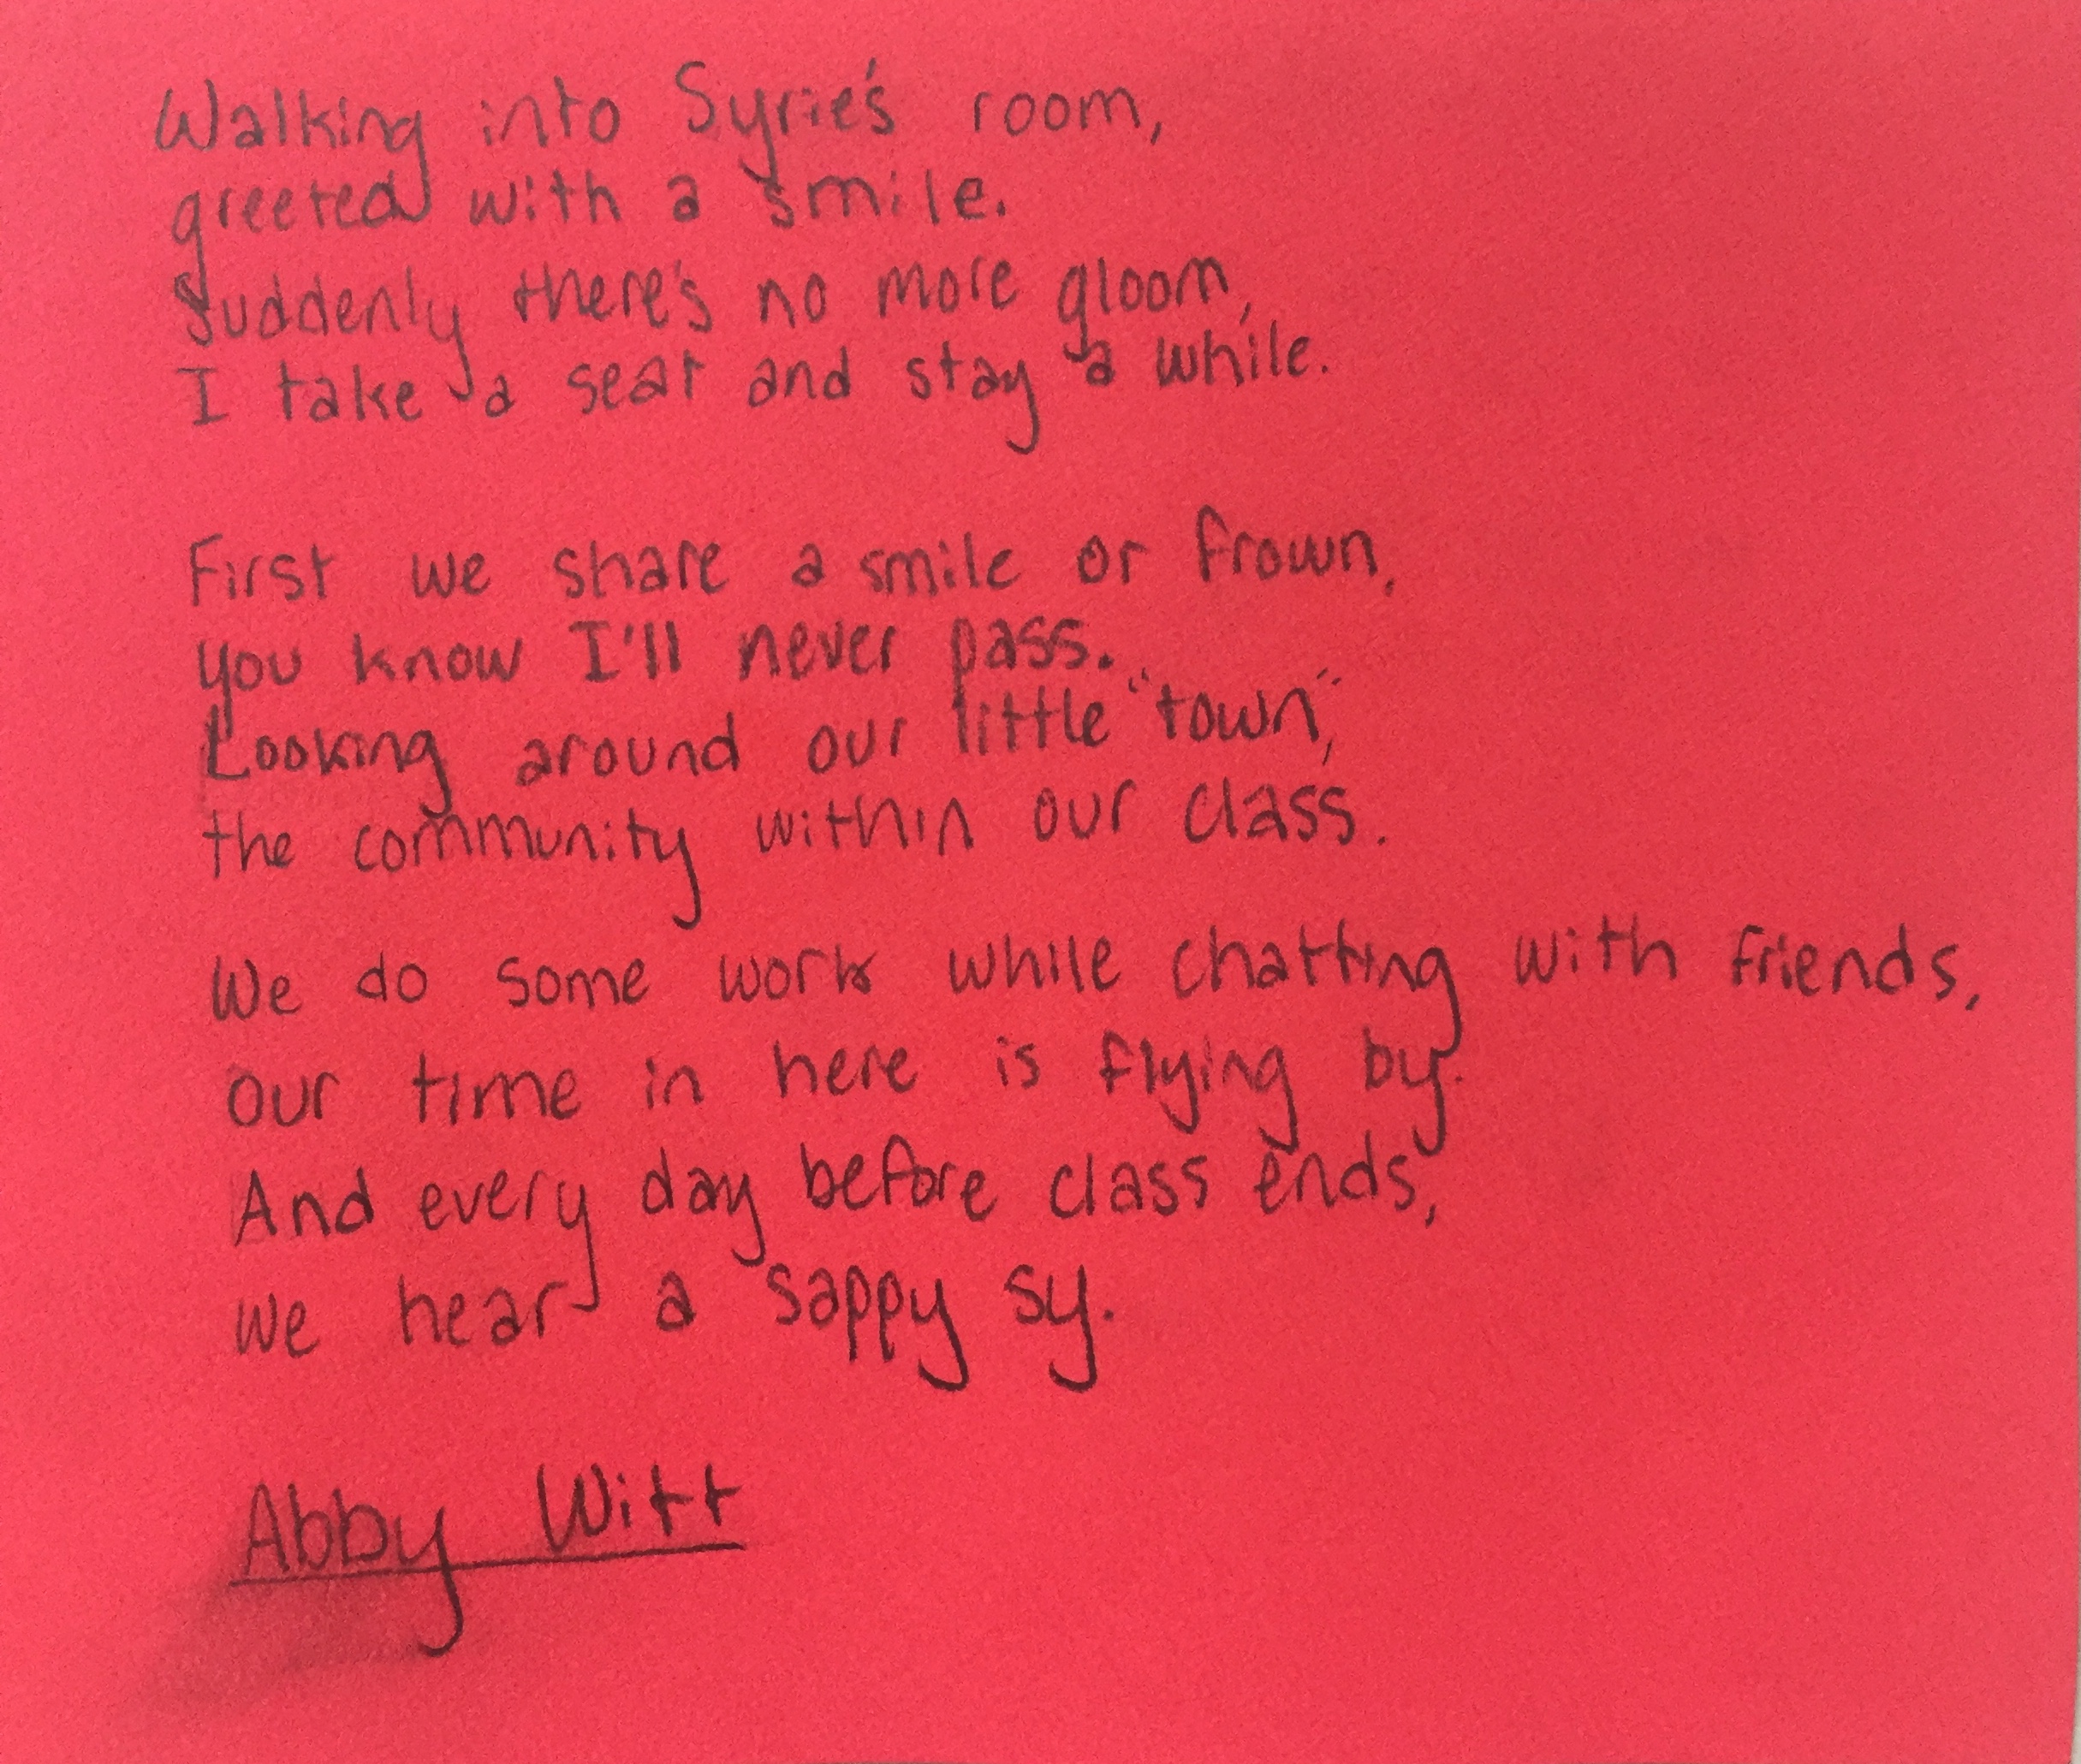 Walking into Syrie's room,
greeted with a smile.
Suddenly there's no more gloom,
I take a seat and stay a while.
First we share a smile or frown,
you know I'll never pass.
Looking around our little "town",
the community within our class.
We do some work while chatting with friends,
our time in here is flying by.
And every day before class ends,
we hear a sappy sy.
Abby Witt